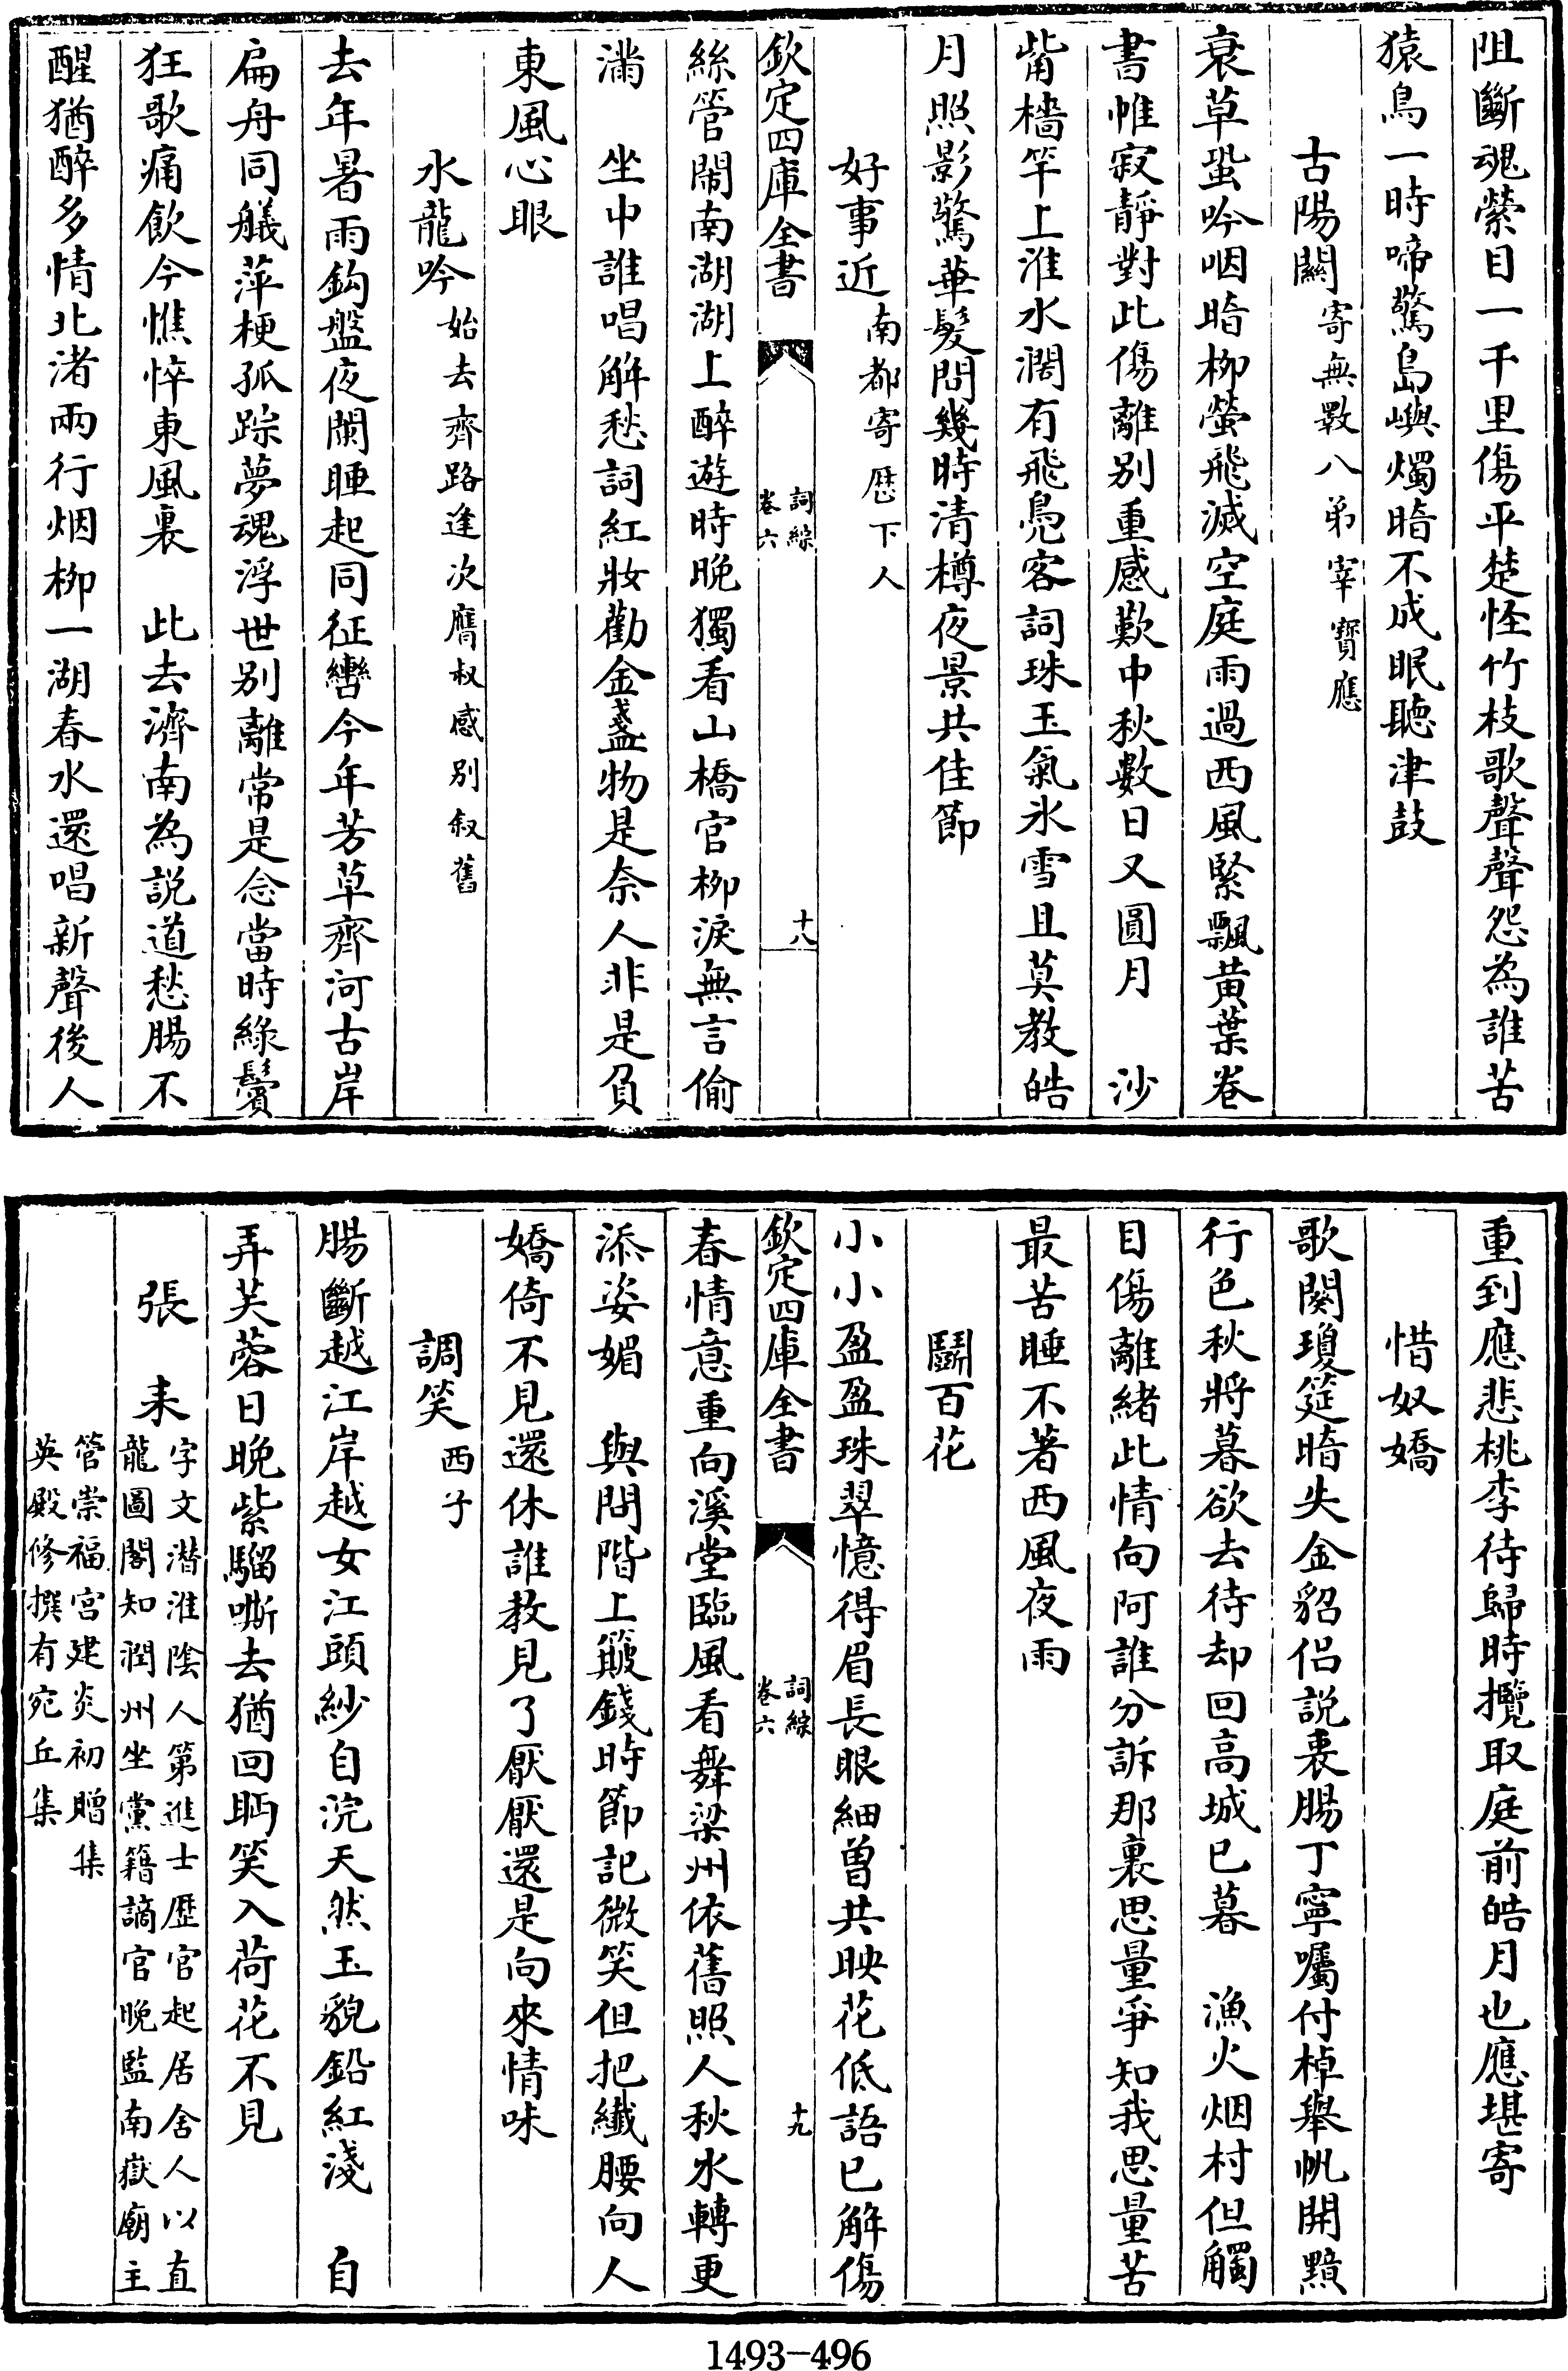 阻斷魂縈目一千里傷平楚怪竹枝歌聲聲怨為誰苦
猿鳥一時啼驚島嶼燭暗不成眠聽津鼓
古陽關寄無斁八弟宰寶應
衰草蛩吟咽暗柳螢飛滅空庭雨過西風緊飄黄葉卷
書帷寂靜對此傷離别重感歎中秋數日又圓月　沙
觜檣竿上淮水濶有飛鳬客詞珠玉氣氷雪且莫教皓
月照影驚華髮問幾時清樽夜景共佳節
好事近南都寄歴下人
欽定四庫全書
詞綜
卷六
十八
絲管閙南湖湖上醉遊時晚獨看山橋官柳淚無言偷
滿　坐中誰唱解愁詞紅妝勸金盞物是奈人非是負
東風心眼
水龍吟始去齊路逢次膺叔感别叙舊
去年暑雨鈎盤夜闌睡起同征轡今年芳草齊河古岸
扁舟同艤萍梗孤踪夢魂浮世别離常是念當時綠鬢
狂歌痛飲今憔悴東風裏　此去濟南為説道愁腸不
醒猶醉多情北渚兩行烟柳一湖春水還唱新聲後人
重到應悲桃李待歸時攬取庭前皓月也應堪寄
惜奴嬌
歌闋瓊筵暗失金貂侶説衷腸丁寧囑付棹舉帆開黯
行色秋將暮欲去待却回高城已暮　漁火烟村但觸
目傷離緒此情向阿誰分訴那裏思量爭知我思量苦
最苦睡不著西風夜雨
鬭百花
小小盈盈珠翠憶得眉長眼細曾共映花低語已解傷
欽定四庫全書
詞綜
卷六
十九
春情意重向溪堂臨風看舞梁州依舊照人秋水轉更
添姿媚　與問階上簸錢時節記微笑但把纖腰向人
嬌倚不見還休誰教見了厭厭還是向來情味
調笑西子
腸斷越江岸越女江頭紗自浣天然玉貌鉛紅淺　自
弄芙蓉日晚紫騮嘶去猶回盻笑入荷花不見
張　耒
字文潜淮陰人第進士歴官起居舍人以直
龍圖閣知潤州坐黨籍謫官晚監南嶽廟主
管崇福宫建炎初贈集
英殿修撰有宛丘集
1493-496